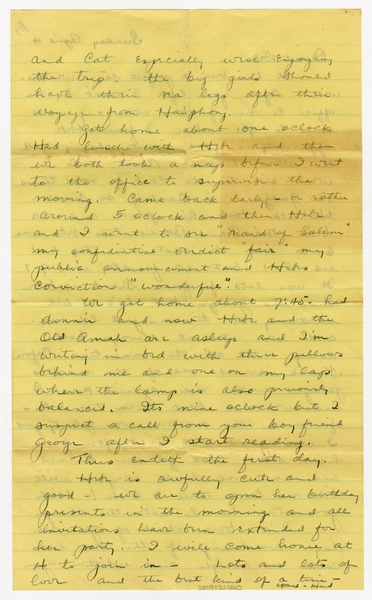 and Cat Especially were Enjoying
the trip - the big girls should
have their sea legs after their
voyage from Haiphong.
Got home about one oclock
Had lunch with Hebe and then
we both took a nap before I went
to the office to supervise the
moving. Came back early - or rather
around 5 oclock and then Hebe
and I went to see "Maid of Salem"
my confidential verdict "fair" my
public announcement and Hebs
conviction "wonderful".
We got home about 7:45 - had
dinner and now Hebe and the
Old Amah are asleep and I'm
writing in bed with three pillows
behind me and one on my lap
where the lamp is also
balanced. Its nine oclock but I
suspect a call from your boy friend
George after I start reading.
Thus Endeth the first day.
Hebe is awfully cute and
good - we are to open her birthday
presents in the morning and all
invitations have been Extended for
her party. I will come home at
4 to join in - Lots and lots of
love and the best kind of a time -